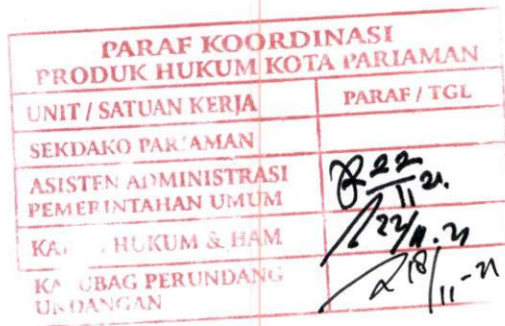 PARAF KOORDINASI
PRODUK HUKUM KOTA PARIAMAN
UNIT / SATUAN KERJA PARAF / TGL
SEKDAKO PARIAMAN
ASISTEN ADMINISTRASI
PEMERINTAHAN UMUM
22/11 21.
HUKUM & HAM
PERUNDANG
UNDANGAN
18/11-21